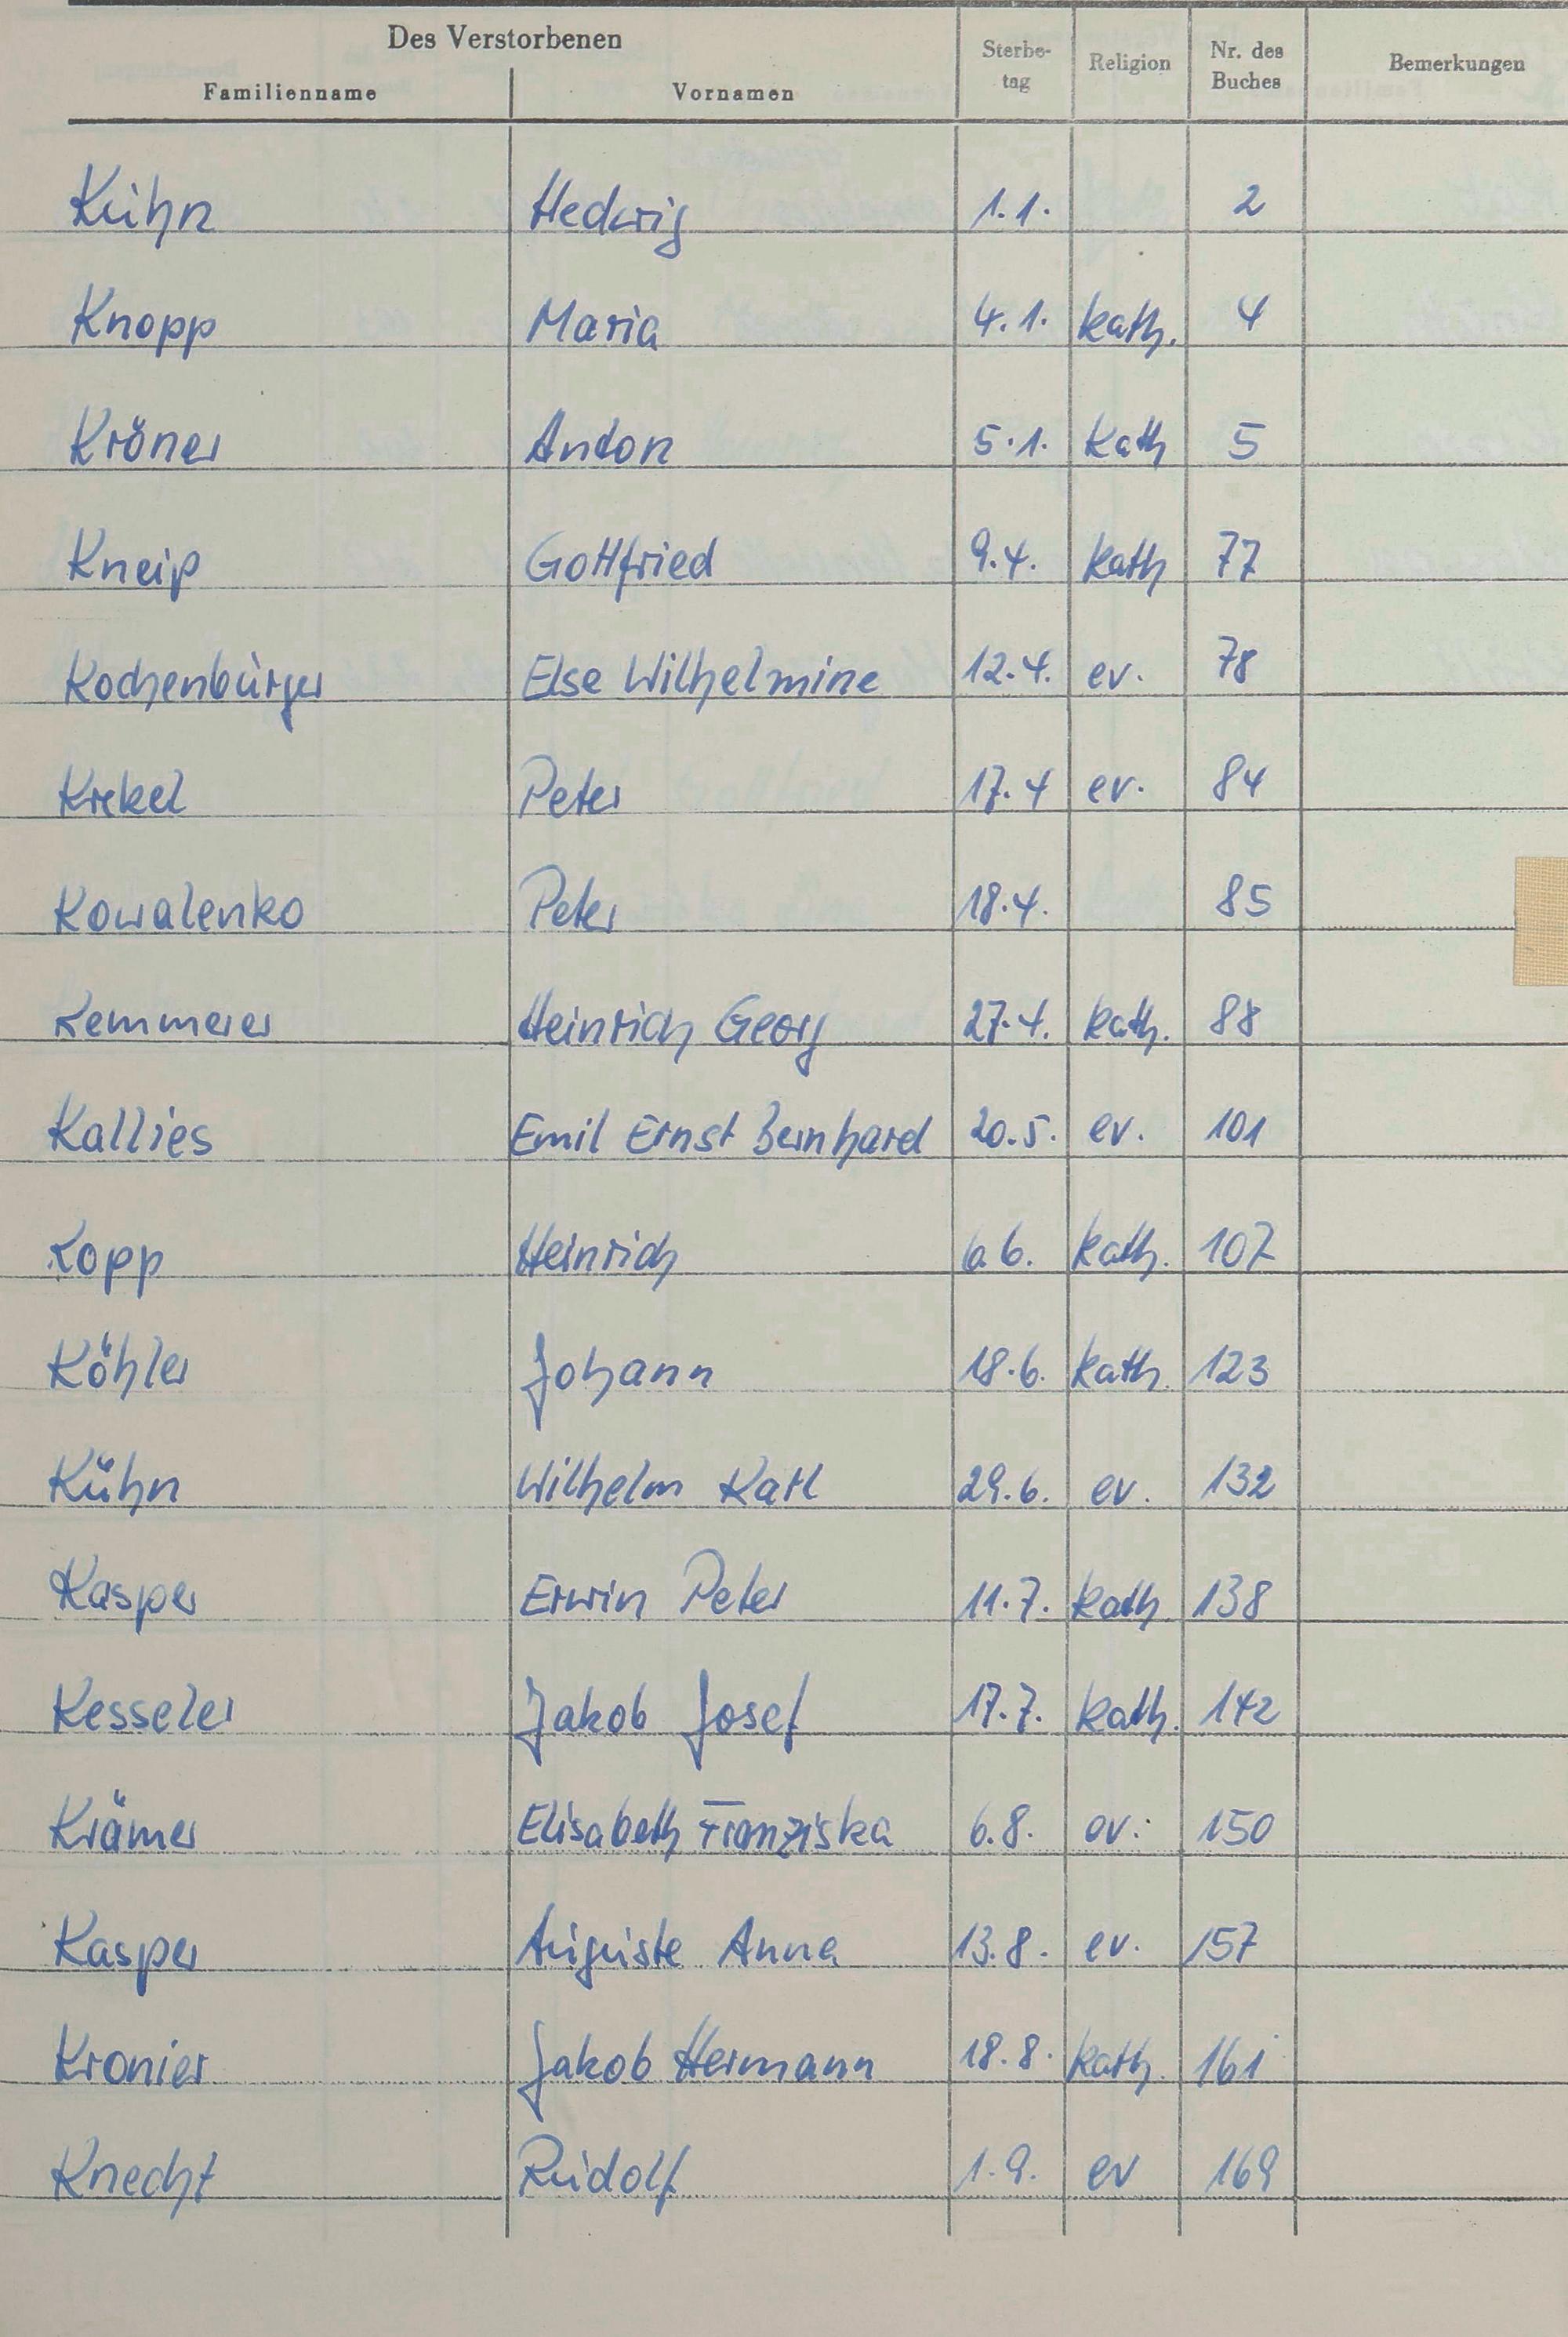 Des Verstorbenen
Familienname Vornamen Sterbe-tag Religion Nr. des Buches Bemerkungen
Kühn Hedwig 1.1. 2
Knopp Maria 4.1. kath. 4
Kröner Anton 5.1. kath 5
Kneip Gottfried 9.4. kath 77
Kochenbürger Else Wilhelmine 12.4. ev. 78
Krekel Peter 17.4 ev. 84
Kowalenko Peter 18.4. 85
Kemmerer Heinrich Georg 27.4. kath. 88
Kallies Emil Ernst Bernhard 20.5. ev. 101
Kopp Heinrich 6.6. kath. 107
Köhler Johann 18.6. kath. 123
Kühn Wilhelm Karl 29.6. ev. 132
Kasper Erwin Peter 11.7. kath 138
Kesseler Jakob Josef 17.7. kath. 142
Krämer Elisabeth Franziska 6.8. ev. 150
Kasper Auguste Anna 13.8. ev. 157
Kronier Jakob Hermann 18.8. kath. 161
Knecht Rudolf 1.9. ev 169